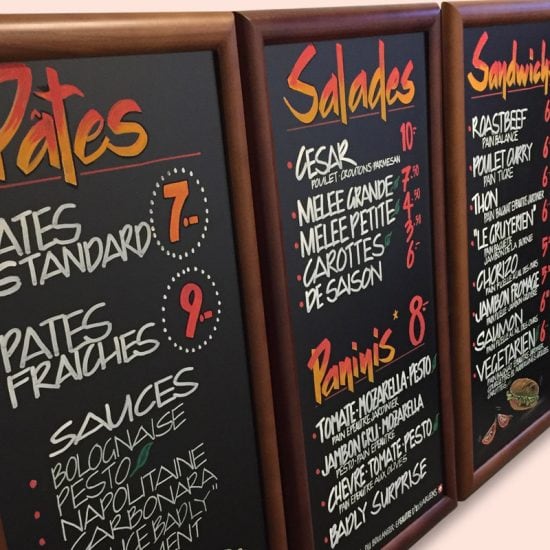 Pâtes
ATES
STANDARD
7.-
PATES
FRAICHES
9.-
SAUCES
BOLOGNAISE
PESTO
NAPOLITAINE
CARBONARA
Salades
CESAR 10.-
POULET·CROUTONS·PARMESAN
MELEE GRANDE 7.50
MELEE PETITE 4.50
CAROTTES 3.50
DE SAISON 6.-
Paninis* 8.-
TOMATE·MOZARELLA·PESTO
PAIN EPEAUTRE JARDINIER
JAMBON CRU·MOZARELLA
PESTO·PAIN EPEAUTRE
CHEVRE·TOMATE·PESTO
PAIN EPEAUTRE AUX OLIVES
BADLY SURPRISE
Sandwich
ROASTBEEF
PAIN BALANCE
POULET CURRY
PAIN TIGRE
THON
"LE GRUYERIEN"
PAIN BAGUETTE
JAMBON DE LA BORNE
CHORIZO
JAMBON FROMAGE
SAUMON
VEGETARIEN